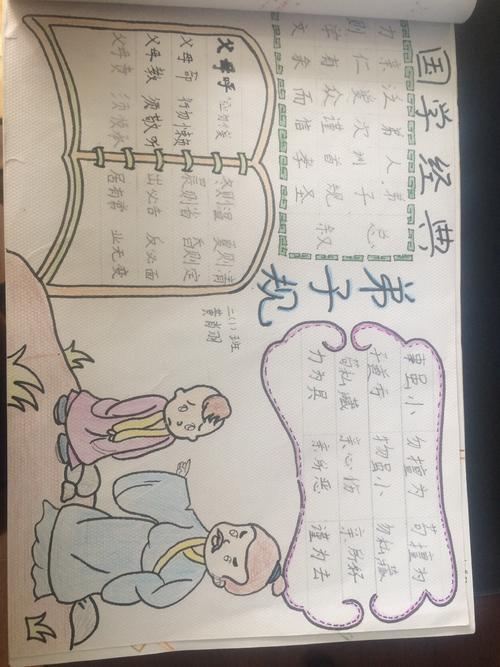 国学经典
总叙
弟子规圣
人训首孝
弟次谨信
泛爱众而
亲仁有余
力则学文
弟子规
事虽小 勿擅为 苟擅为
子道亏 物虽小 勿私藏
苟私藏 亲心伤 亲所好
力为具 亲所恶 谨为去
父母呼 应勿缓
父母命 行勿懒
父母教 须敬听
父母责 须顺承
冬则温 夏则凊
晨则省 昏则定
出必告 反必面
居有常 业无变
三(1)班